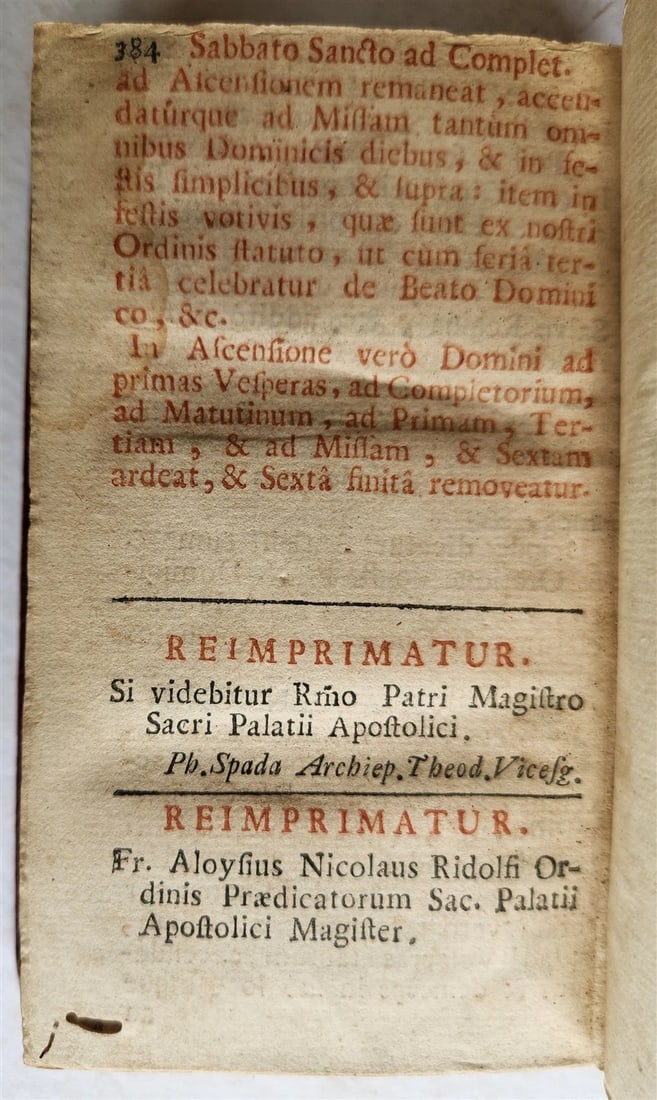 384 Sabbato Sancto ad Complet.
ad Aſcenſionem remaneat, accen-
datúrque ad Miſſam tantùm om-
nibus Dominicis diebus, & in fe-
ſtis ſimplicibus, & ſupra: item in
feſtis votivis, quæ ſunt ex noſtri
Ordinis ſtatuto, ut cùm feriâ ter-
tiâ celebratur de Beato Domini
co, &c.
In Aſcenſione verò Domini ad
primas Veſperas, ad Completorium,
ad Matutinum, ad Primam, Ter-
tiam, & ad Miſſam, & Sextam
ardeat, & Sextâ finitâ removeatur.
REIMPRIMATUR.
Si videbitur Rm̃o Patri Magiſtro
Sacri Palatii Apoſtolici.
Ph. Spada Archiep. Theod. Viceſg.
REIMPRIMATUR.
Fr. Aloyſius Nicolaus Ridolfi Or-
dinis Prædicatorum Sac. Palatii
Apoſtolici Magiſter.